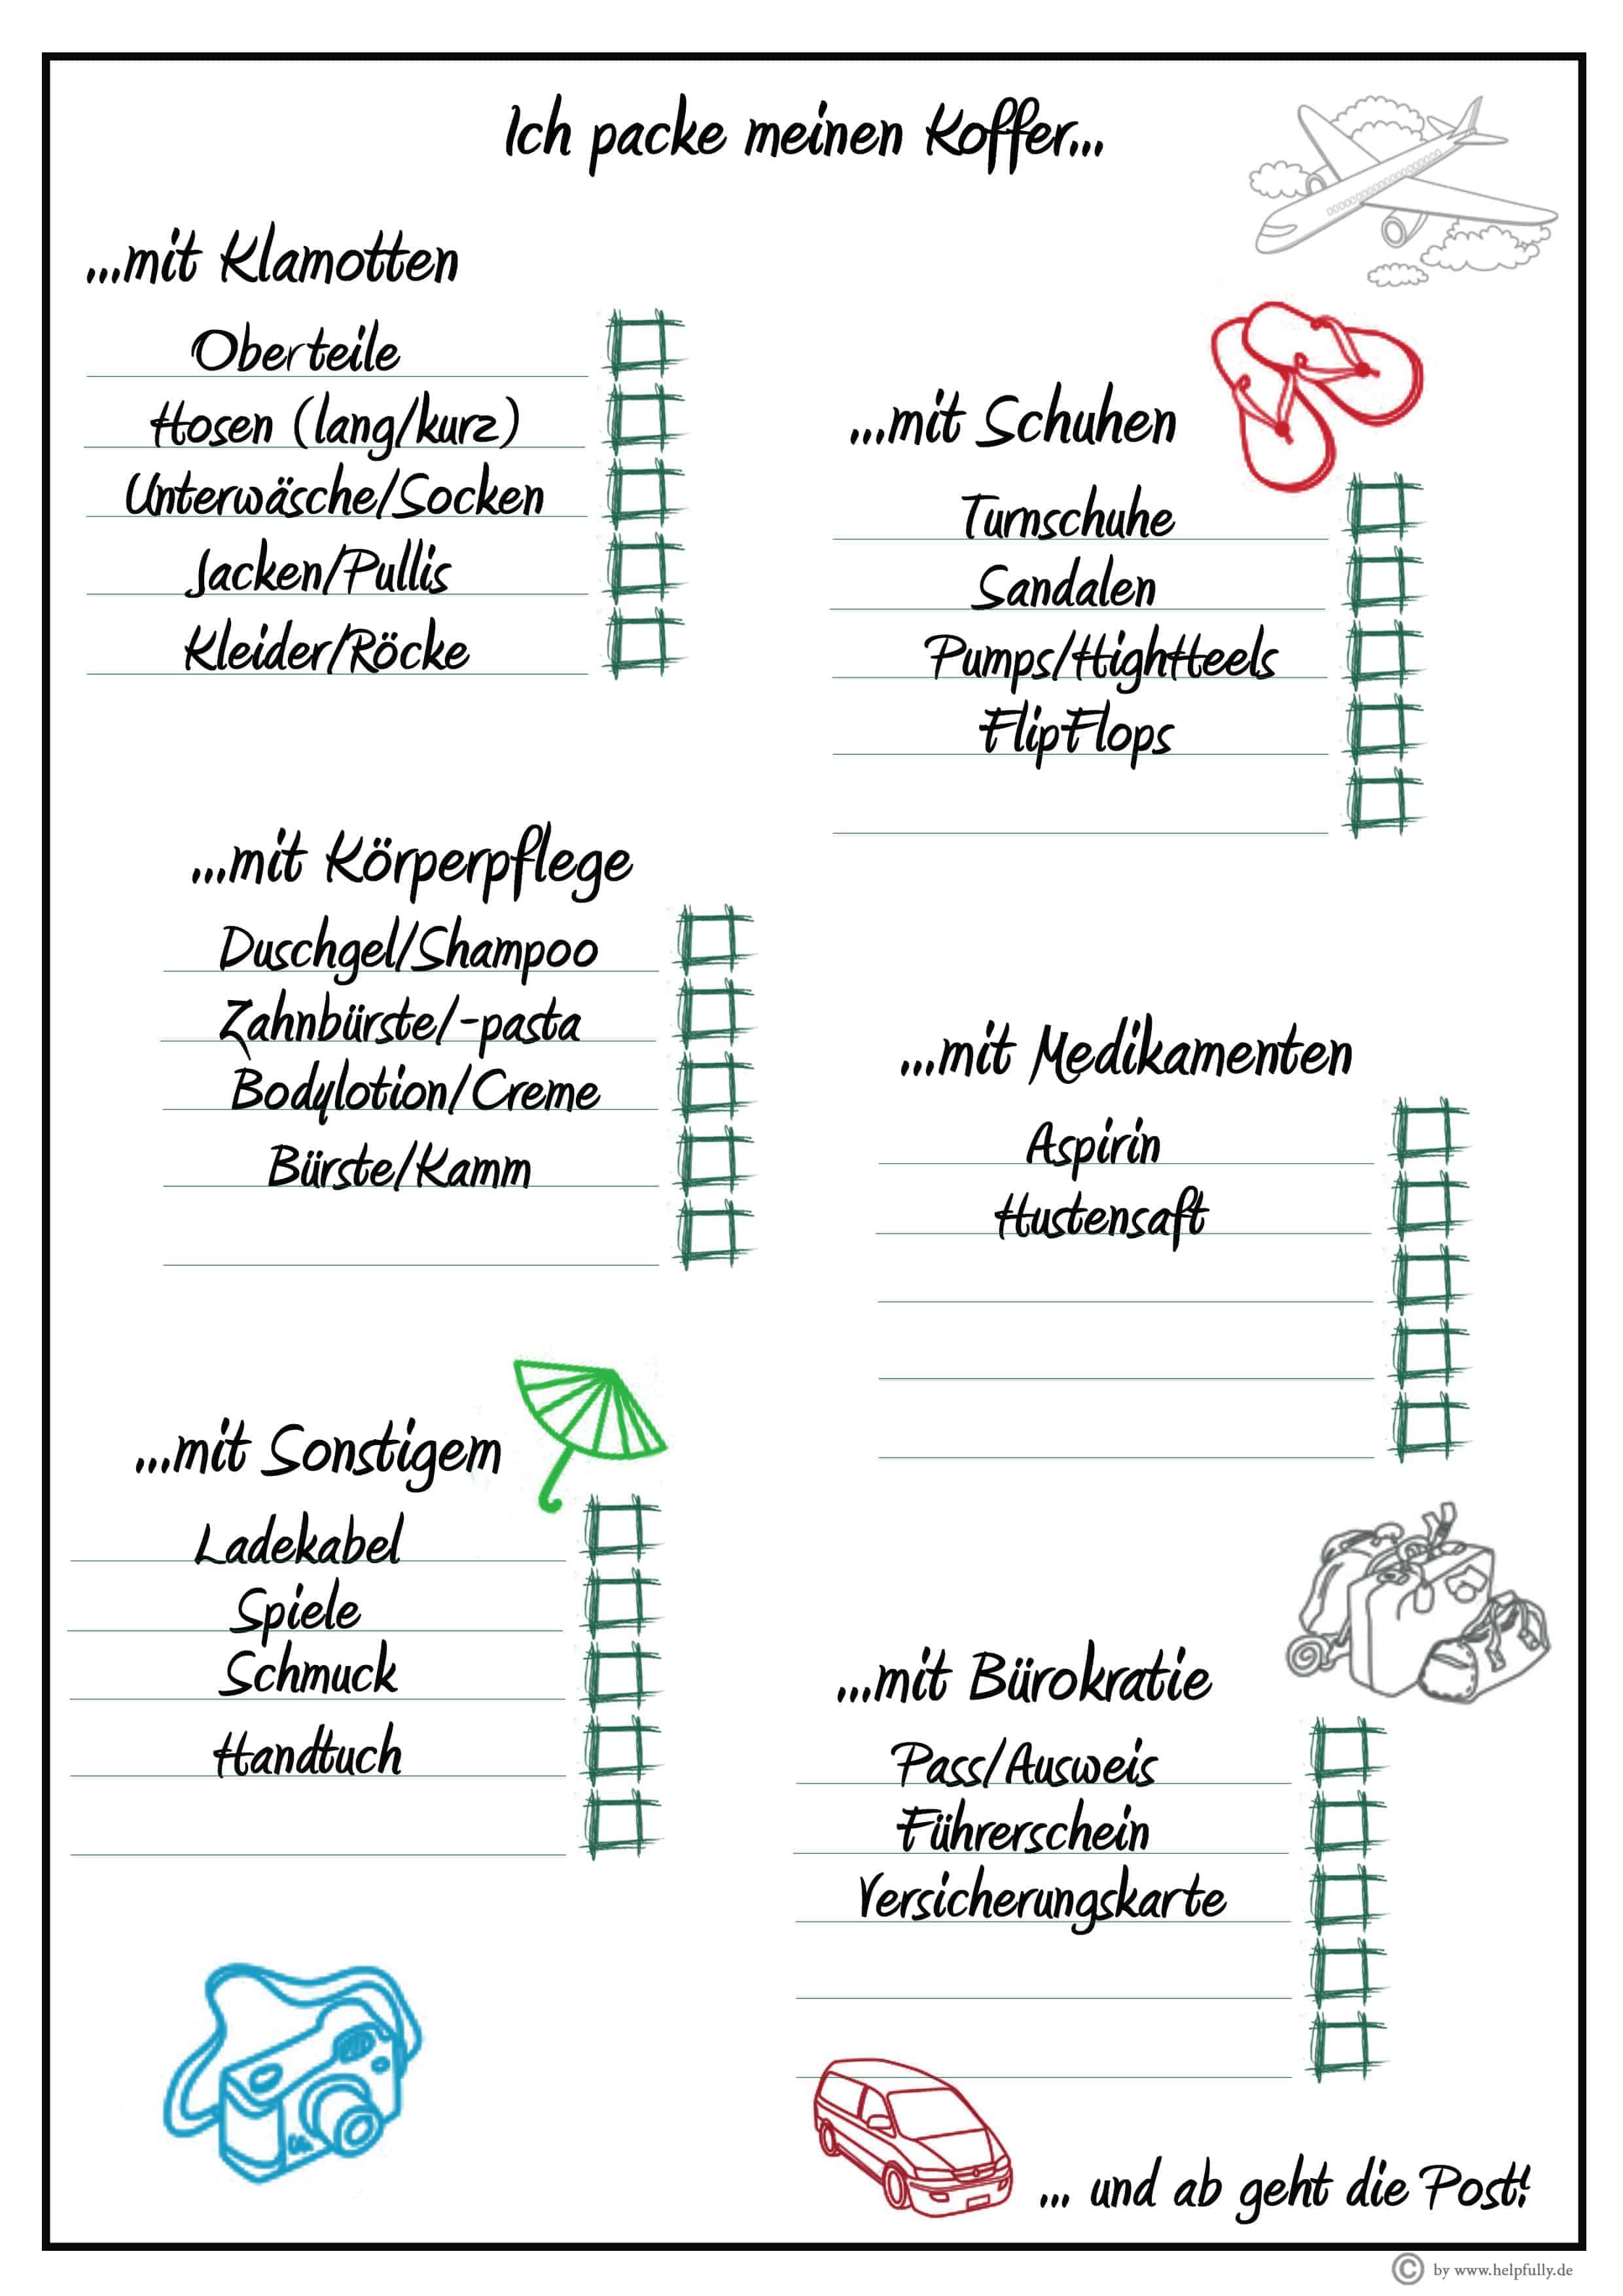 Ich packe meinen Koffer...
...mit Klamotten
Oberteile
Hosen (lang/kurz)
Unterwäsche/Socken
Jacken/Pullis
Kleider/Röcke
...mit Schuhen
Turnschuhe
Sandalen
Pumps/HighHeels
FlipFlops
...mit Körperpflege
Duschgel/Shampoo
Zahnbürste/-pasta
Bodylotion/Creme
Bürste/Kamm
...mit Medikamenten
Aspirin
Hustensaft
...mit Sonstigem
Ladekabel
Spiele
Schmuck
Handtuch
...mit Bürokratie
Pass/Ausweis
Führerschein
Versicherungskarte
... und ab geht die Post!
© by www.helpfully.de